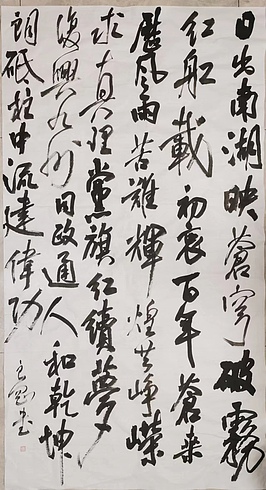 日出南湖映蒼穹破霧
紅船載初衷百年蒼
歷風雨苦難輝煌共崢嶸
求真理黨旗紅續夢
復興九州同政通人和乾坤
朗砥柱中流建偉功
書